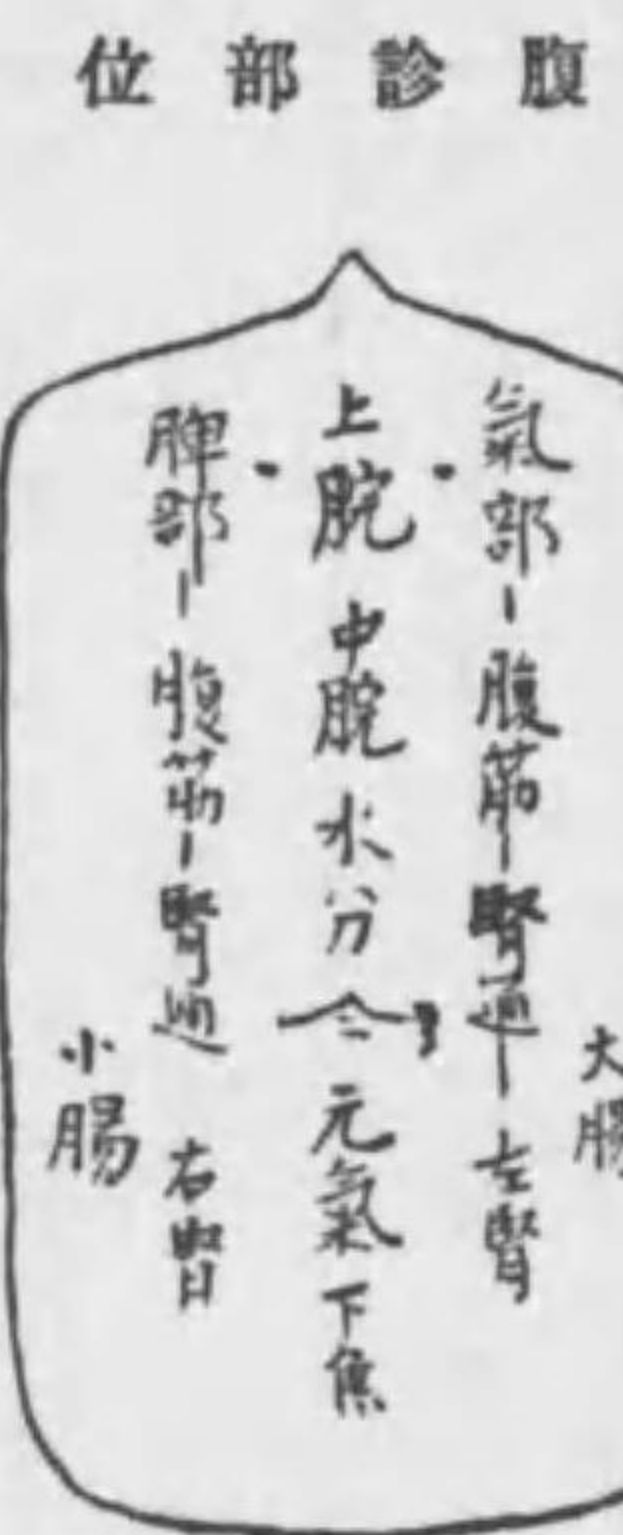 腹診部位
大腸
氣部-腹筋-腎通-左腎
上脘 中脘 水分 元氣 下焦
脾部-腹筋-腎通 右腎
小腸